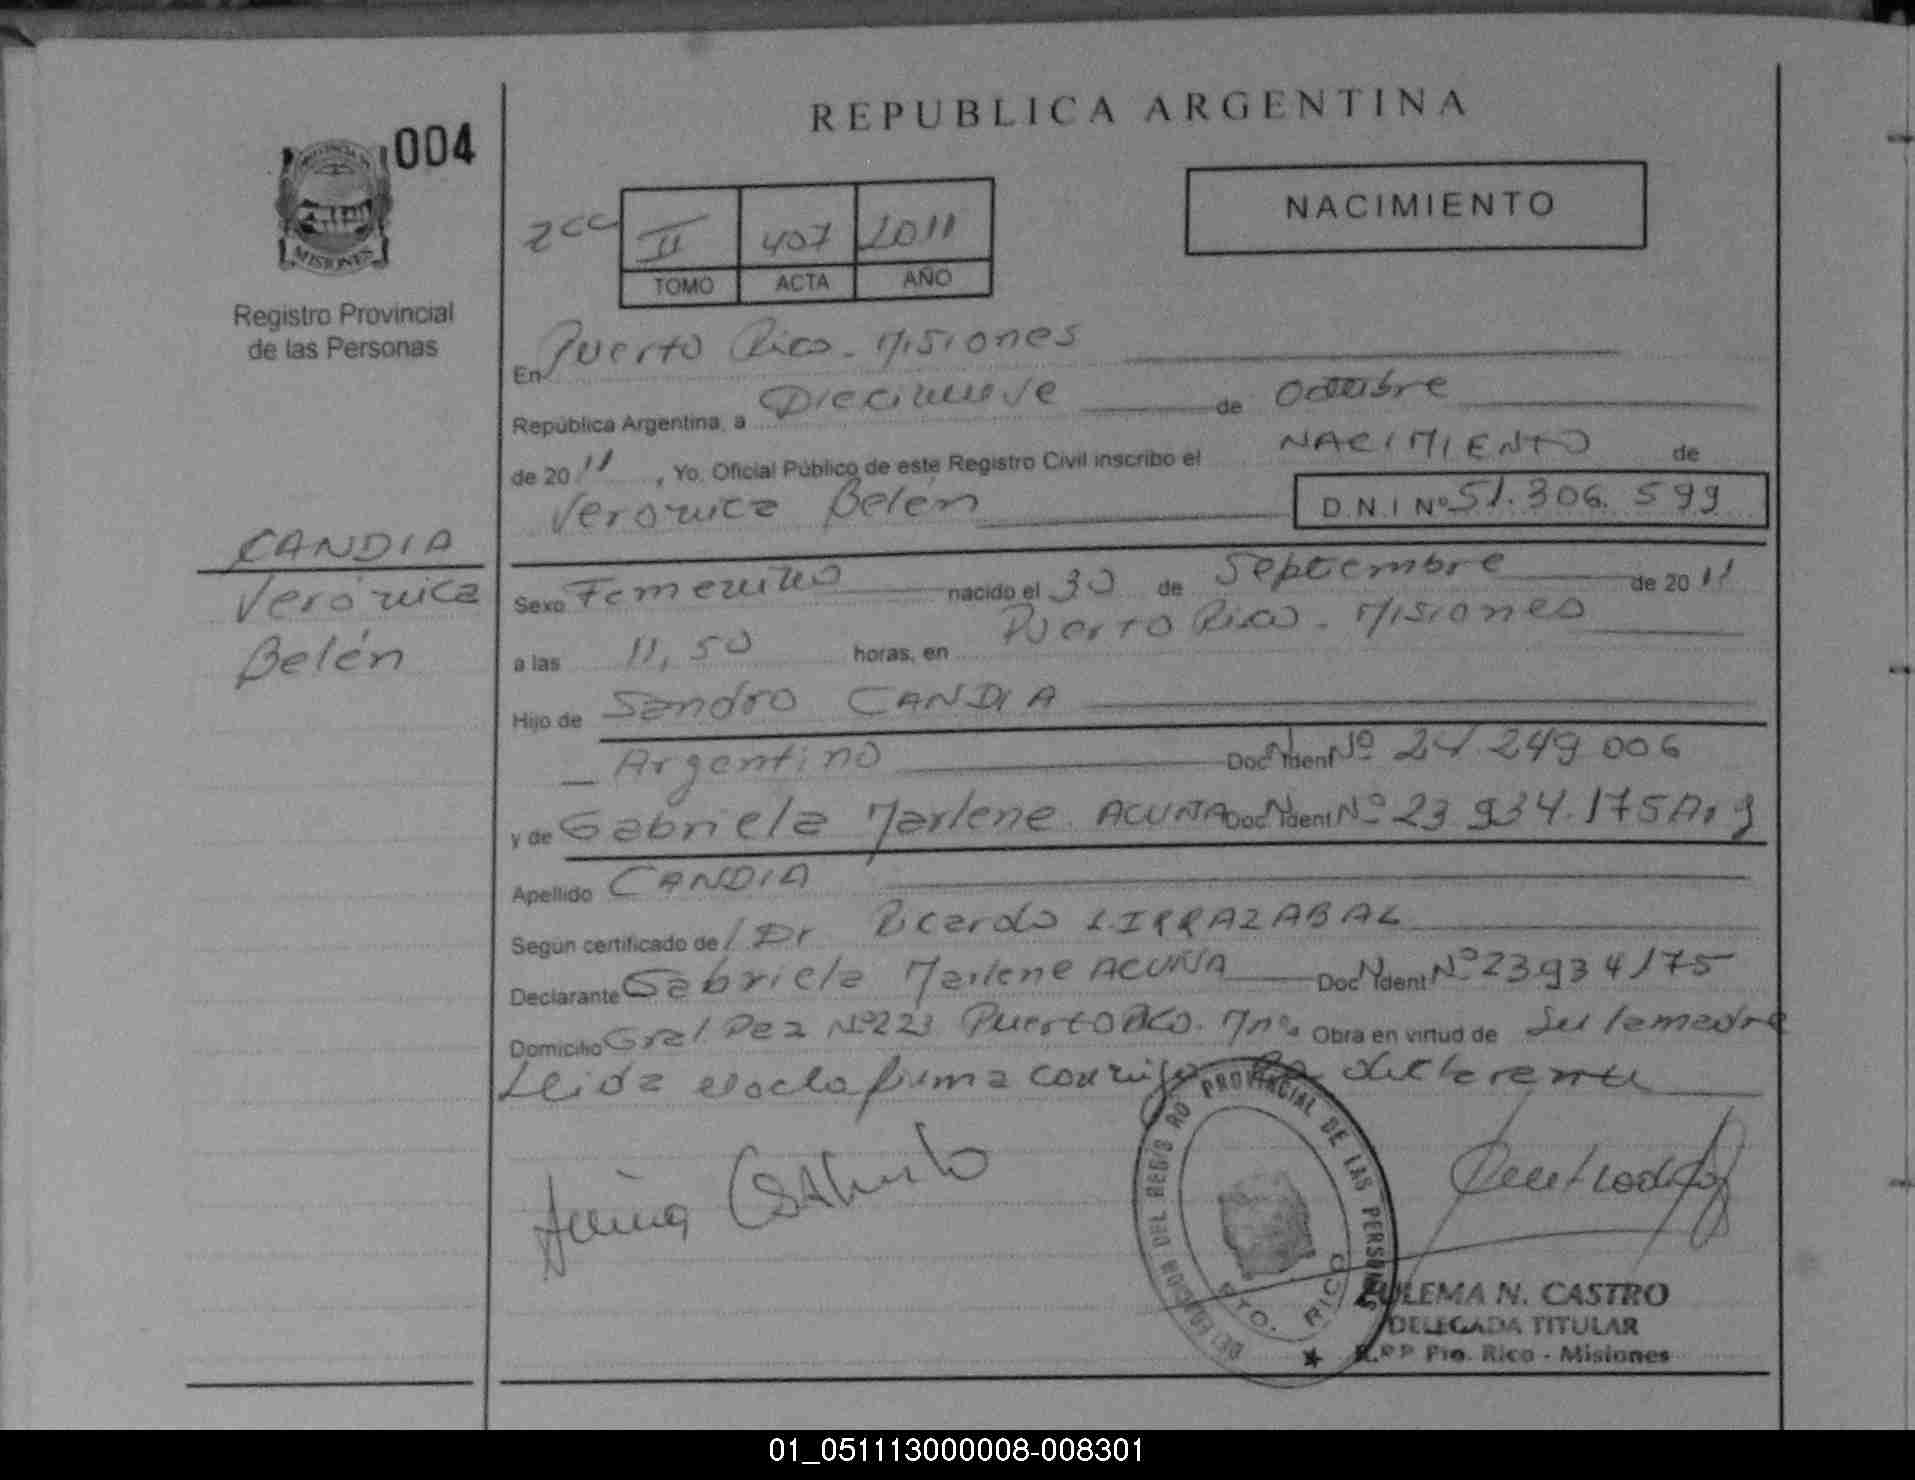 REPUBLICA ARGENTINA
004
PROVINCIA DE
MISIONES
Registro Provincial
de las Personas
NACIMIENTO
II 407 2011
TOMO ACTA AÑO
En Puerto Rico - Misiones
República Argentina, a Diecinueve de Octubre
de 20 11, Yo, Oficial Público de este Registro Civil inscribo el NACIMIENTO de
Verónica Belén D.N.I Nº 51.306.599
CANDIA
Verónica
Belén
Sexo Femenino nacido el 30 de Septiembre de 20 11
a las 11,50 horas, en Puerto Rico - Misiones
Hijo de Sandro CANDIA
Argentino Doc. Ident Nº 24.249.006
y de Gabriela Marlene ACUÑA Doc. Ident Nº 23.934.175 Arg
Apellido CANDIA
Según certificado de Dr Ricardo LIRRAZABAL
Declarante Gabriela Marlene ACUÑA Doc. Ident Nº 23934175
Domicilio Gral Paz Nº 223 Puerto Rico. Mnes Obra en virtud de Ser la madre
Leída el acta firma conmigo la declarante
DELEGACION DEL REGISTRO PROVINCIAL DE LAS PERSONAS
PTO. RICO
ZULEMA N. CASTRO
DELEGADA TITULAR
R.P.P Pto. Rico - Misiones
01_051113000008-008301